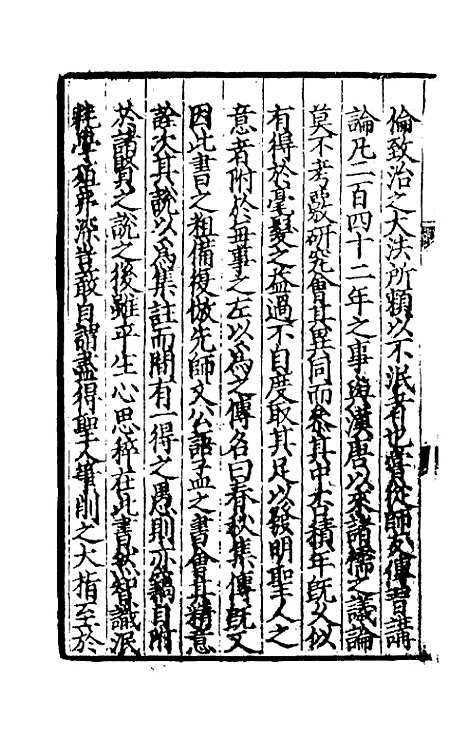 倫致治之大法所賴以不泯者也嘗從師友傳習講
論凡二百四十二年之事與漢唐以來諸儒之議論
莫不考覈研究會其異同而參其中否積年旣久似
有得於毫髮之益過不自度取其足以發明聖人之
意者附於每事之左以爲之傳名曰春秋集傳旣又
因此書之粗備復倣先師文公語孟之書會其精意
詮次其說以爲集註而間有一得之愚則亦竊自附
於諸賢之說之後雖平生心思粹在此書然智識
聖人筆削之大指至於